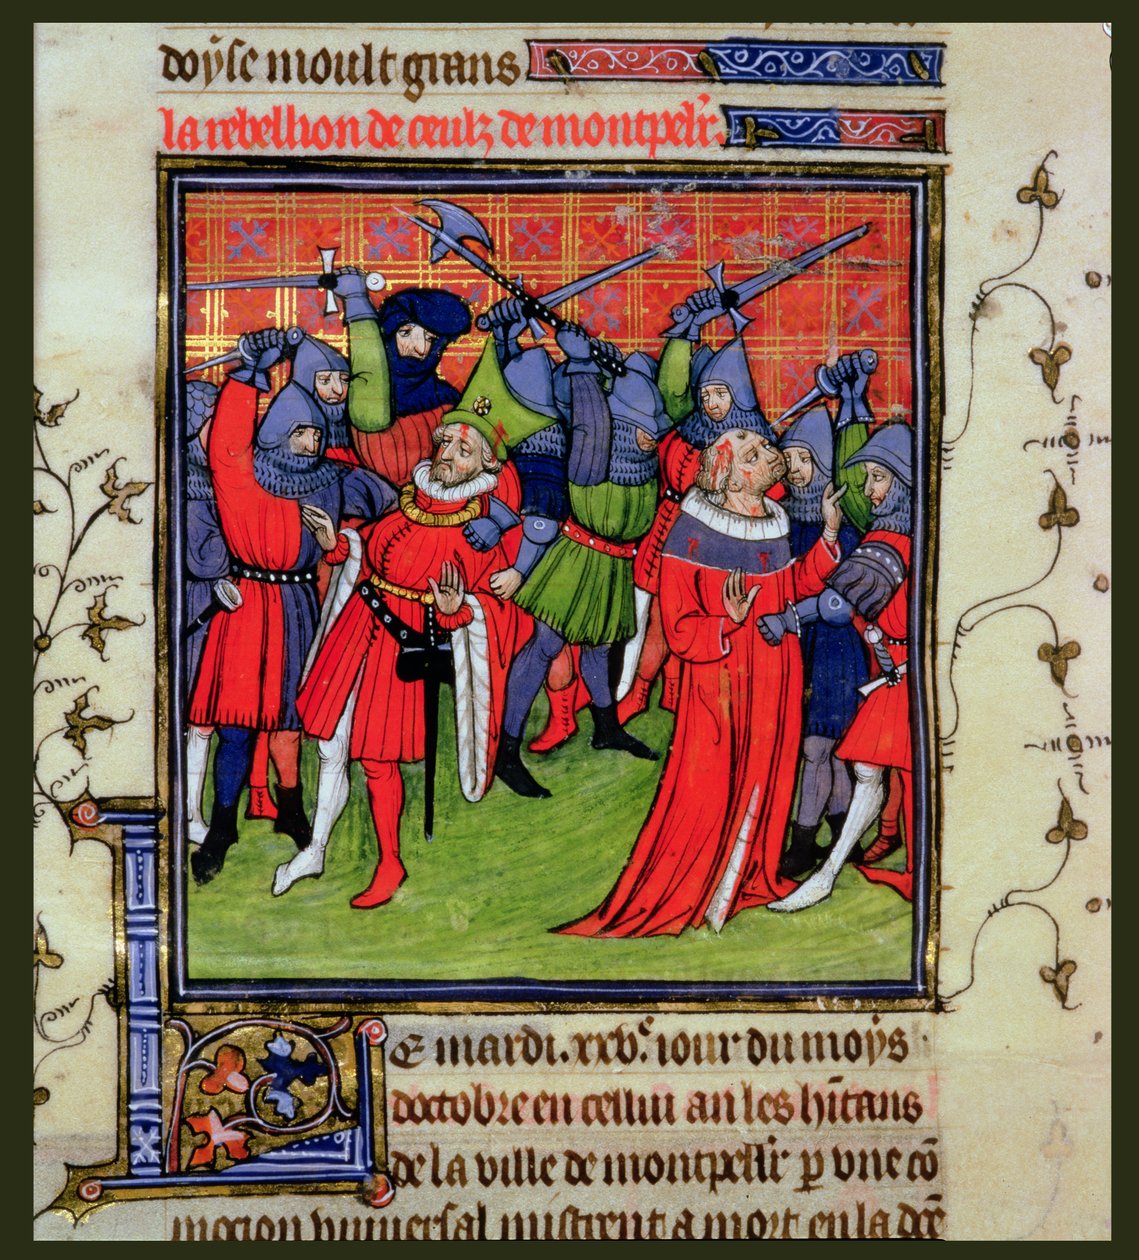 doỹse moult grans
la rebellion de ceulz de montpelr̄.
Le mardi. xxvͤ. iour du moỹs
doctobre en cellui an les hītans
de la ville de montpellr̄ ꝑ vne cō
mocion vniuersal mistrent a mort en la dc̄e